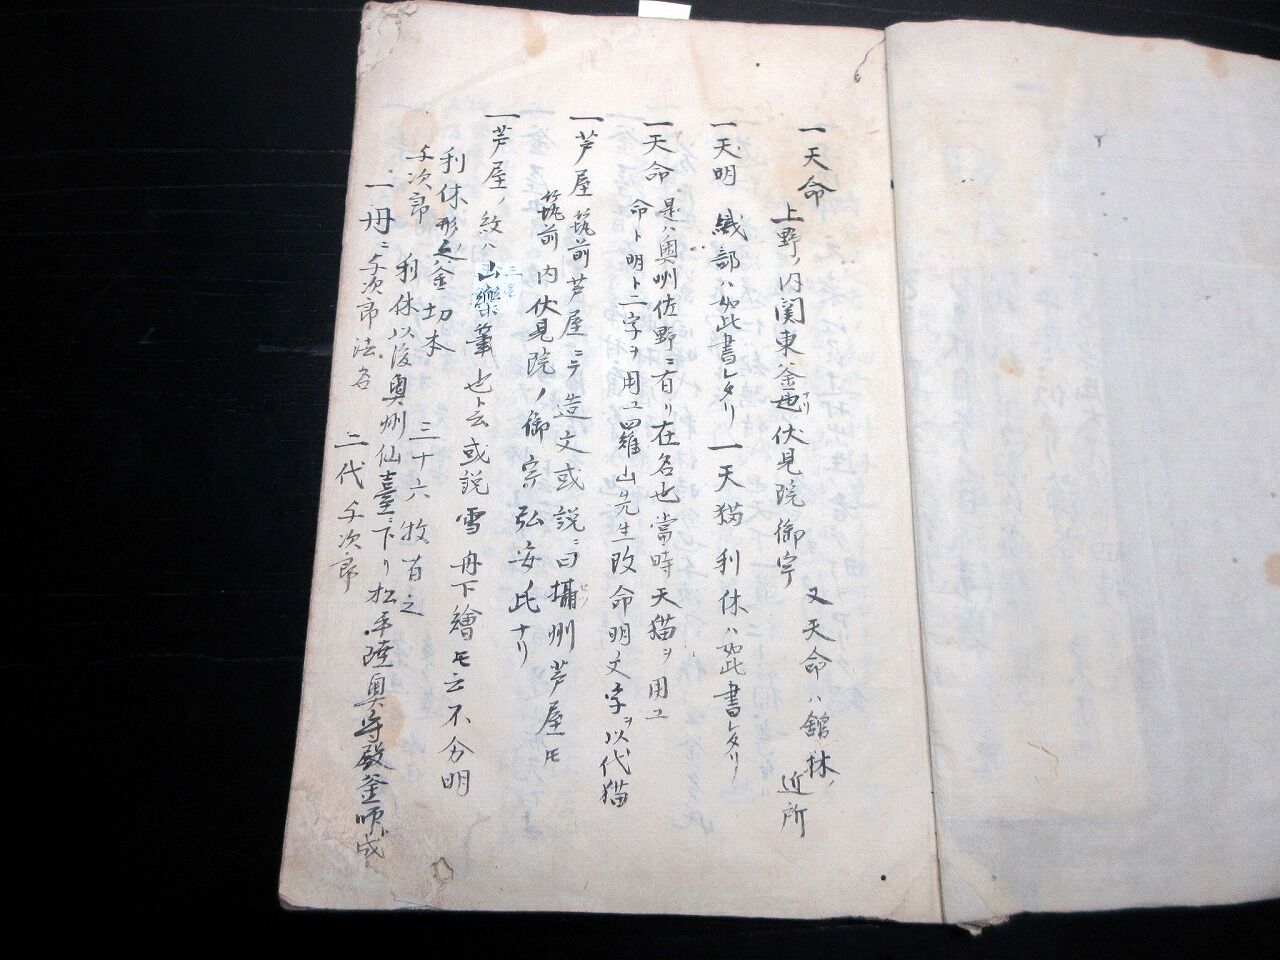 一天命
上野ノ内関東釜也ナリ伏見院御宇
又天命ハ舘林ノ
近所
一天明 織部ハ如此書レタリ 一天猫 利休ハ如此書レタリ
一天命 是ハ奥州佐野ニ有リ在名也當時天猫ヲ用ユ
命ト明ト二字ヲ用ユ羅山先生改命明文字ヲ以代猫
一芦屋 筑前芦屋ニテ造文或説ニ曰攝州芦屋モ
筑前 内伏見院ノ御宗弘安氏ナリ
一芦屋ノ紋ハ山樂筆也ト云或説雪舟下繪モ云不分明
利休形之釜切本 三十六枚有之
与次郎 利休以後奥州仙臺下リ松平陸奥守殿釜師成
一舟ニ与次郎法名 二代 与次郎